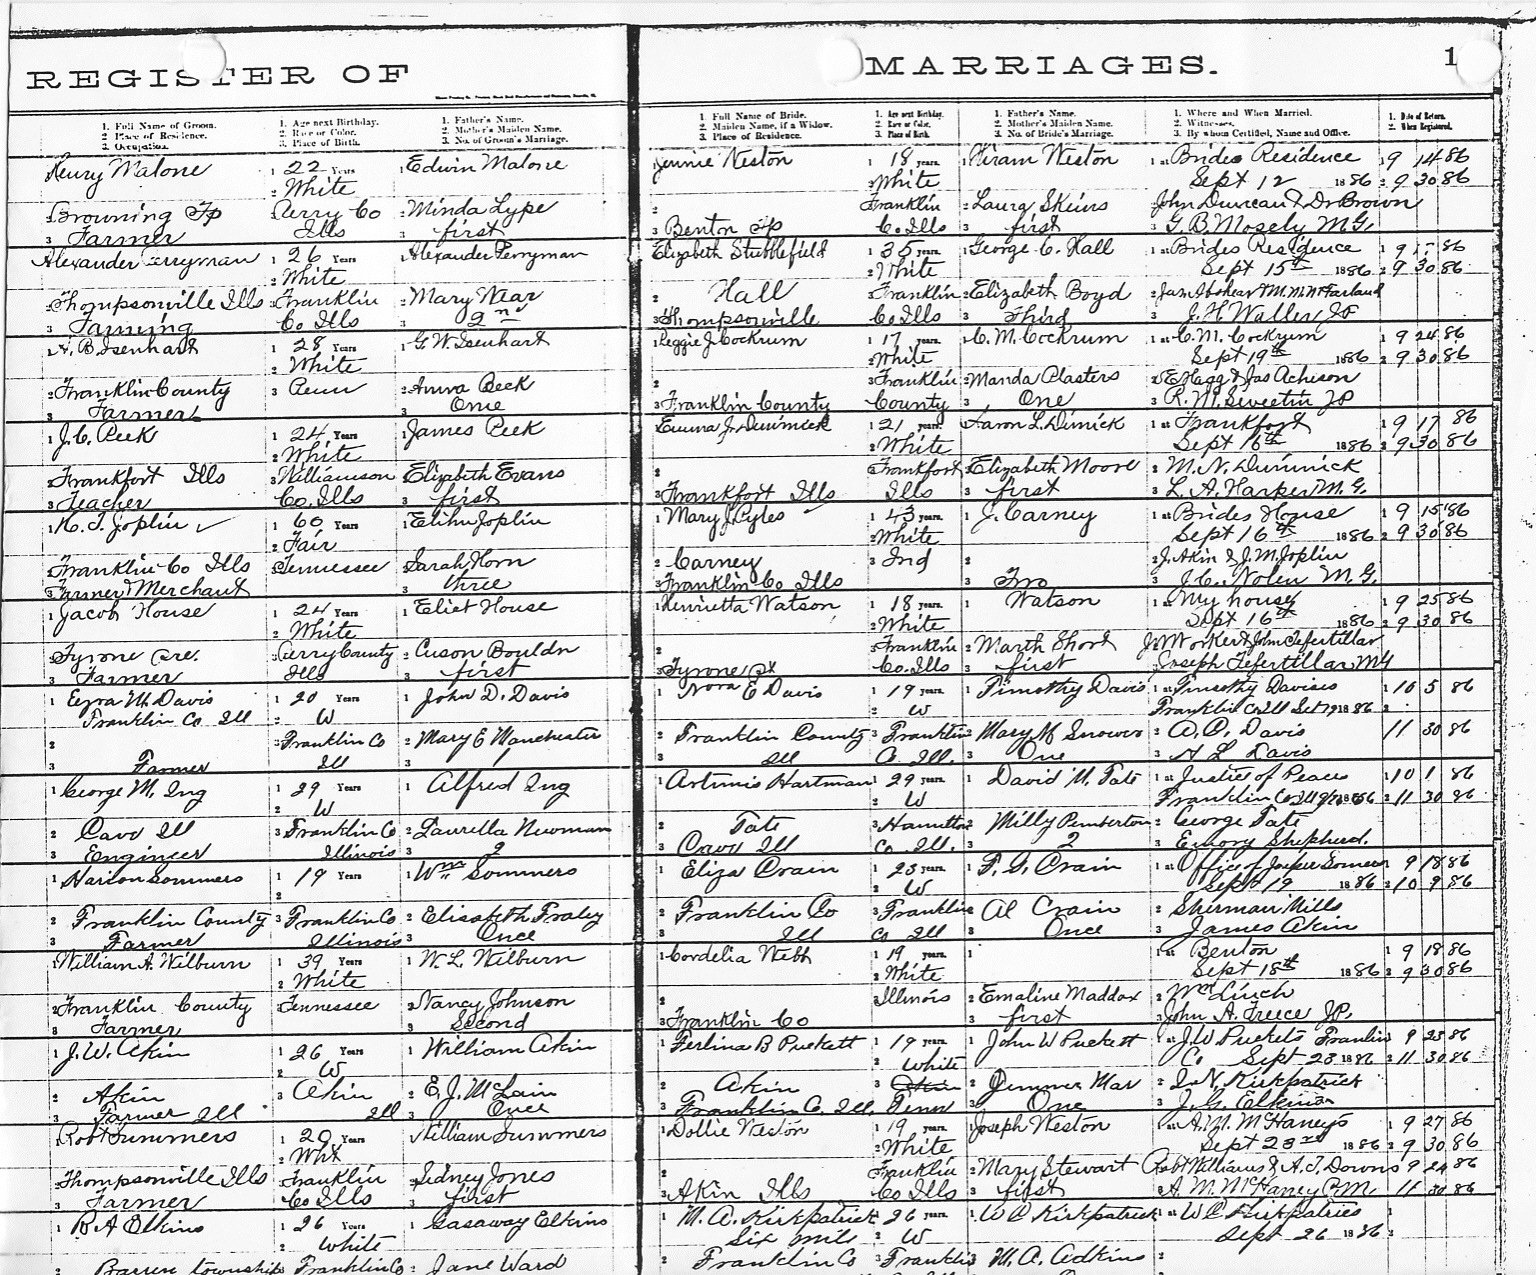 REGISTER OF MARRIAGES. 1
1. Full Name of Groom. 2. Place of Residence. 3. Occupation.
1. Age next Birthday. 2. Race or Color. 3. Place of Birth.
1. Father's Name. 2. Mother's Maiden Name. 3. No. of Groom's Marriage.
1. Full Name of Bride. 2. Maiden Name, if a Widow. 3. Place of Residence.
1. Age next Birthday. 2. Race or Color. 3. Place of Birth.
1. Father's Name. 2. Mother's Maiden Name. 3. No. of Bride's Marriage.
1. Where and When Married. 2. Witnesses. 3. By whom Certified, Name and Office.
1. Date of Return. 2. When Registered.
Henry Malone 1 22 Years 1 Edwin Malone Jennie Weston 1 18 years. 1 Hiram Weston 1 at Brides Residence 1 9 14 86
2 White 2 White Sept 12 1886 2 9 30 86
Browning Tp Perry Co 2 Minda Lype 2 Franklin 2 Laura Skins John Duncan & Dr Brown
3 Farmer Ills 3 first 3 Benton Tp Co. Ills 3 first 3 G. B. Mosely M.G.
Alexander Perryman 1 26 Years Alexander Perryman Elizabeth Stubblefield 1 35 years. 1 George C. Hall 1 at Brides Residence 1 9 86
2 White 2 White Sept 15th 1886 2 9 30 86
Thompsonville Ills Franklin 2 Mary Near 2 Hall Franklin 2 Elizabeth Boyd 2
3 Farming Co Ills 3 2nd 3 Thompsonville Co. Ills 3 Third 3 J. H. Waller JP
1 A. B. Isenhart 1 28 Years 1 G. W. Isenhart J. Cockrum 1 17 years. 1 C. M. Cockrum 1 at C. M. Cockrum 1 9 24 86
2 White 2 White Sept 19th 1886 2 9 30 86
2 Franklin County 3 Penn 2 Anna Peek 2 Franklin 2 Manda Plasters 2 & Jas Acheson
3 Farmer 3 One 3 Franklin County County 3 One 3 R. M. Sweetin JP
1 J. C. Peek 1 24 Years 1 James Peek Emma J. Dimick 1 21 years. Aaron L. Dimick 1 at Frankfort 1 9 17 86
2 White 2 White Sept 16th 1886 2 9 30 86
2 Frankfort Ills Williamson Elizabeth Evans 2 Frankfort 2 Elizabeth Moore 2 M. N. Dimmick
3 Teacher Co. Ills 3 first 3 Frankfort Ills Ills 3 first 3 L. A. Harper M.G.
1 T. Joplin 1 60 Years 1 Elihu Joplin 1 Mary J. Pyles 1 43 years. 1 J. Carney 1 at Brides House 1 9 15 86
2 Fair 2 White Sept 16th 1886 2 9 30 86
Franklin Co Ills Tennessee Sarah Horn 2 Carney 3 Ind 2 2 J. Akin & J. M. Joplin
Farmer & Merchant 3 three 3 Franklin Co Ills 3 Two 3 J. C. Nolen M.G.
1 Jacob House 1 24 Years 1 Eliet House 1 Henrietta Watson 1 18 years. 1 Watson 1 at My house 1 9 25 86
2 White 2 White Sept 16th 1886 2 9 30 86
2 Tyrone Pre. Perry County 2 Cuson Bouldn 2 Franklin 2 Marth Short John Tefertillar
3 Farmer Ills 3 first 3 Tyrone Co. Ills 3 first Joseph Tefertillar MG
1 Ezra M. Davis 1 20 Years 1 John D. Davis 1 Nora E Davis 1 19 years. 1 Timothy Davis 1 at Timothy Davises 1 10 5 86
Franklin Co. Ill 2 W 2 W Franklin Co Ill 1886 2
2 3 Franklin Co 2 Mary E Manchester 2 Franklin County 3 Franklin 2 Mary M 2 A. P. Davis 11 30 86
3 Farmer Ill 3 1 3 Ill Co. Ill. 3 One 3 L Davis
1 George M. Ing 1 29 Years 1 Alfred Ing 1 Artimis Hartman 1 29 years. 1 David M. Tate 1 at Justice of Peace 1 10 1 86
2 W 2 W Franklin Co Ill 1886 2 11 30 86
2 Cave Ill 3 Franklin Co 2 Laurella Newman 2 Tate 3 Hamilton 2 Milly Pemberton 2 George Tate
3 Engineer Illinois 3 2 3 Cave Ill Co Ill. 3 2 3 Emory Shepherd.
1 Harison Sommers 1 19 Years 1 Wm Sommers 1 Eliza Crain 1 23 years. 1 F. G. Crain 1 at Office of 1 9 18 86
2 2 W Sept 19 1886 2 10 9 86
2 Franklin County 3 Franklin Co 2 Elisabeth Fraley 2 Franklin Co 3 Franklin 2 Al Crain 2 Sherman Mills
3 Farmer Illinois 3 Once 3 Ill Co Ill 3 Once 3 James Akin
1 William A. Wilburn 1 39 Years 1 W. L. Wilburn 1 Cordelia Webb 1 19 years. 1 1 at Benton 1 9 18 86
2 White 2 White Sept 18th 1886 2 9 30 86
2 Franklin County Tennessee 2 Nancy Johnson 2 Illinois 2 Emaline Maddox 2 Wm Linch
3 Farmer 3 Second 3 Franklin Co 3 first 3 John A. Treece JP.
1 J. W. Akin 1 26 Years 1 William Akin 1 Ferlina B Puckett 1 19 years. 1 John W Puckett 1 at J. W Pucketts Franlin 9 25 86
2 W White Co Sept 23 1886 2 11 30 86
2 Akin 3 Akin 2 E. J. McLain 2 Akin 3 Akin 2 Mar 2 N. Kirkpatrick
3 Farmer Ill Ill 3 Once 3 Franklin Co. Ill. Tenn 3 One 3 J. G. Elkins
Robt Summers 1 20 Years William Summers 1 Dollie Weston 1 19 years. Joseph Weston 1 at A. M. McHaneys 1 9 27 86
2 Wht 2 White Sept 23rd 1886 2 9 30 86
Thompsonville Ills Franklin Sidney Jones 2 Franklin 2 Mary Stewart Robt Williams & A. J. Downs 9 24 86
3 Farmer Co Ills 3 first 3 Akin Ills Co Ills 3 first 3 A. M. McHaney P.M. 11 30 86
1 R. A Elkins 1 26 Years 1 Gasaway Elkins 1 M. A. Kirkpatrick 1 26 years. 1 W C Kirkpatrick 1 at W C Kirkpatrics 1
2 White Six mile 2 W Sept 26 1886 2
2 Barren township Franklin Co 2 Jane Ward Franklin Co Franklin M. A. Adkins 2